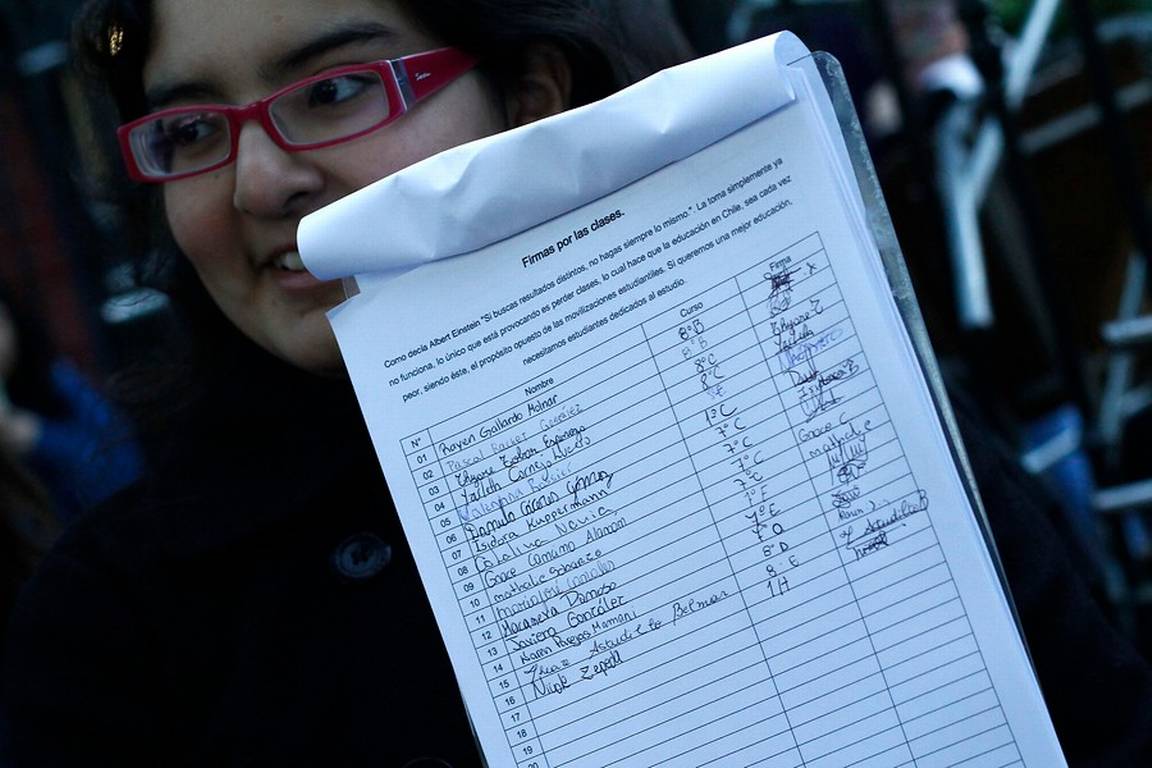 Firmas por las clases.
Como decía Albert Einstein "Si buscas resultados distintos, no hagas siempre lo mismo.". La toma simplemente ya
no funciona, lo único que está provocando es perder clases, lo cual hace que la educación en Chile, sea cada vez
peor, siendo éste, el propósito opuesto de las movilizaciones estudiantiles. Si queremos una mejor educación,
necesitamos estudiantes dedicados al estudio.
N° Nombre Curso Firma
01 Rayen Gallardo Molnar 8°B
02 Pascal González 8°B
03 Thyare Tobar Espinoza 8°C Thyare T
04 Yarleth Cornejo 8°C
05 Valentina
06 Danila Gómez 1°C
07 Isidora Kuppermann 7°C
08 Catalina Navia 7°C
09 Grace Camano Alarcón 7°C Grace C
10 Mathalie 7°C mathalie
11 María José González 1°F
12 Macarena Donoso 7°E
13 Javiera González
14 Karen Parejas Mamani 8°D Karen
15 Astudillo Belmar 8°E Astudillo B
16 Nicole Zepeda 1H
17
18
19
20